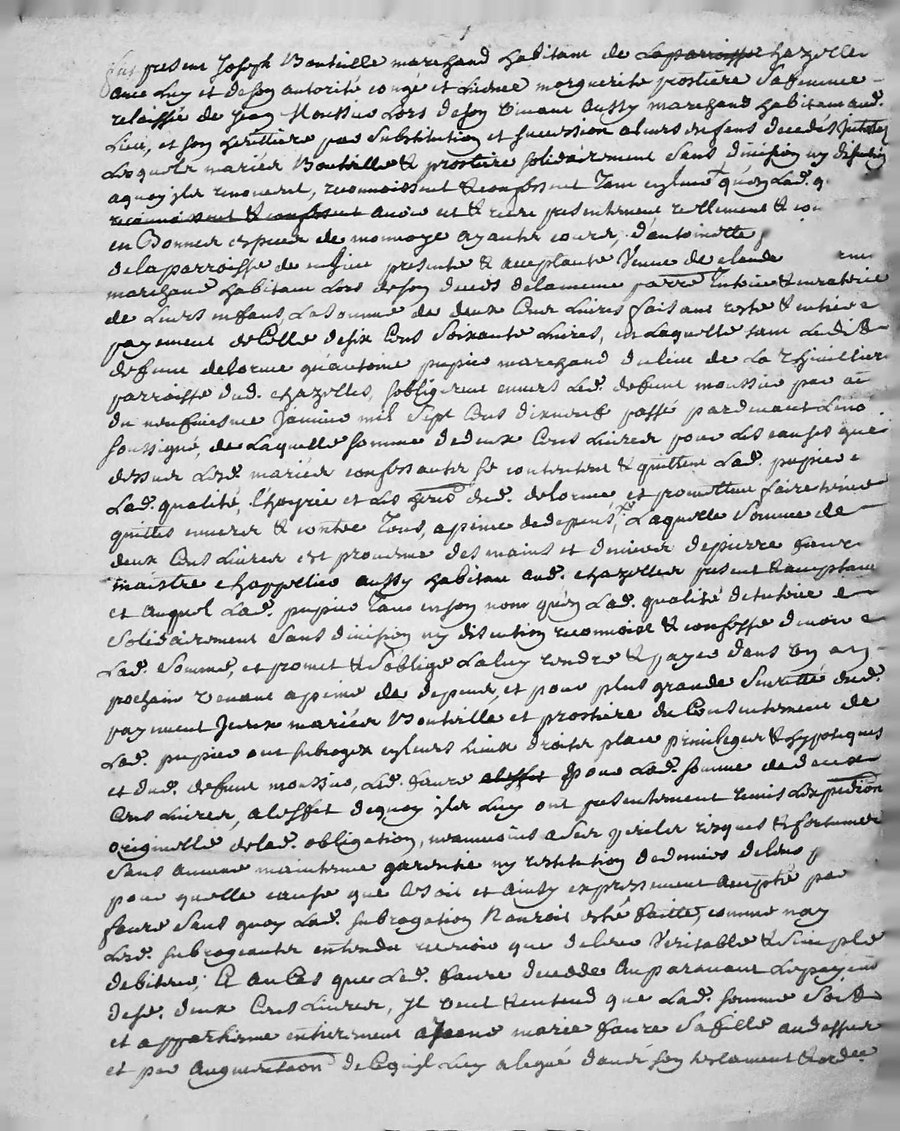 fut present Joseph Bouteille marchand habitant de la parroisse chazelle
avec luy et de son autorité congé et licence marguerite prostiere sa femme
relaissée de jean Moussier Lors de son vivant aussy marchand habitant aud.
Lieu, et son heritiere par substitution et succession a leurs enfans decedés
Lesquels mariés Bouteille & prostiere solidairement sans division ny discution
a quoy ils renoncent, reconnoissent & confessent tant en leur qu'en Lad. q
reconnoissent & confessent avoir eut & receu presentement reellement &
en Bonnes especes de monnoye ayants cours, d'antoinette
de la parroisse de presente & acceptante veuve de claude
marchand habitant Lors de son deces de la meme parre tutrice & curatrice
de Leurs enfans, La somme de deux Cens Livres faisant reste & entiere
payement de Celle de six Cens soixante Livres, en Laquelle tant Ledit
defunt delorme qu'antoine pupier marchand du lieu de La Thuilliere
parroisse dud. chazelles, s'obligerent envers Led. defunt moussier par
du neufiesme Janvier mil sept Cens dixneuf passé pardevant Le no
soussigné, de Laquelle somme de deux Cens Livres pour Les causes que
dessus Lesd. mariés confessants se contentent & quittent Lad. pupier e
Lad. qualité, l'hoyrie et Les heres dud. delorme, et promettent faire tenir
quittes envers & contre Tous, a peine de depens, Laquelle somme de
deux Cens Livres est provenue des mains et deniers de pierre faure
maistre chappellier aussy habitant aud. chazelles present & acceptant
et auquel Lad. pupier tant en son nom qu'en Lad. qualité de tutrice e
solidairement sans division ny discution reconnoist & confesse devoir
Lad. somme, et promet & s'oblige La luy rendre & payer dans un an
prochain venant a peine de depens, et pour plus grande seuretté dud.
payement Iceux mariés Bouteille et prostiere du Consentement de
Lad. pupier ont subrogez en leurs Lieux droits place privileges & hypoteques
et dud. defunt moussier, Led. faure pour Lad. somme de deux
Cens Livres, a l'effet de quoy ils Luy ont presentement remis L'expedition
originelle de lad. obligation, neanmoins a ses perils risques & fortunes
sans aucune maintenue garentie ny restitution de deniers de leur p
pour quelle cause que ce soit et ainsy expressement accepté par
faure sans quoy Lad. subrogation n'auroit esté faitte, comme nay
Lesd. subrogeants entendu recevoir que de leur veritable & simple
debiteur; Et au Cas que Led. faure decede auparavant Le payem
desd. deux Cens Livres, Il veut & entend que Lad. somme soit
et appartienne entierement a Jeane marie faure sa fille au dessus
et par augmentation de Ce qu'il Luy a legué dans son testament &